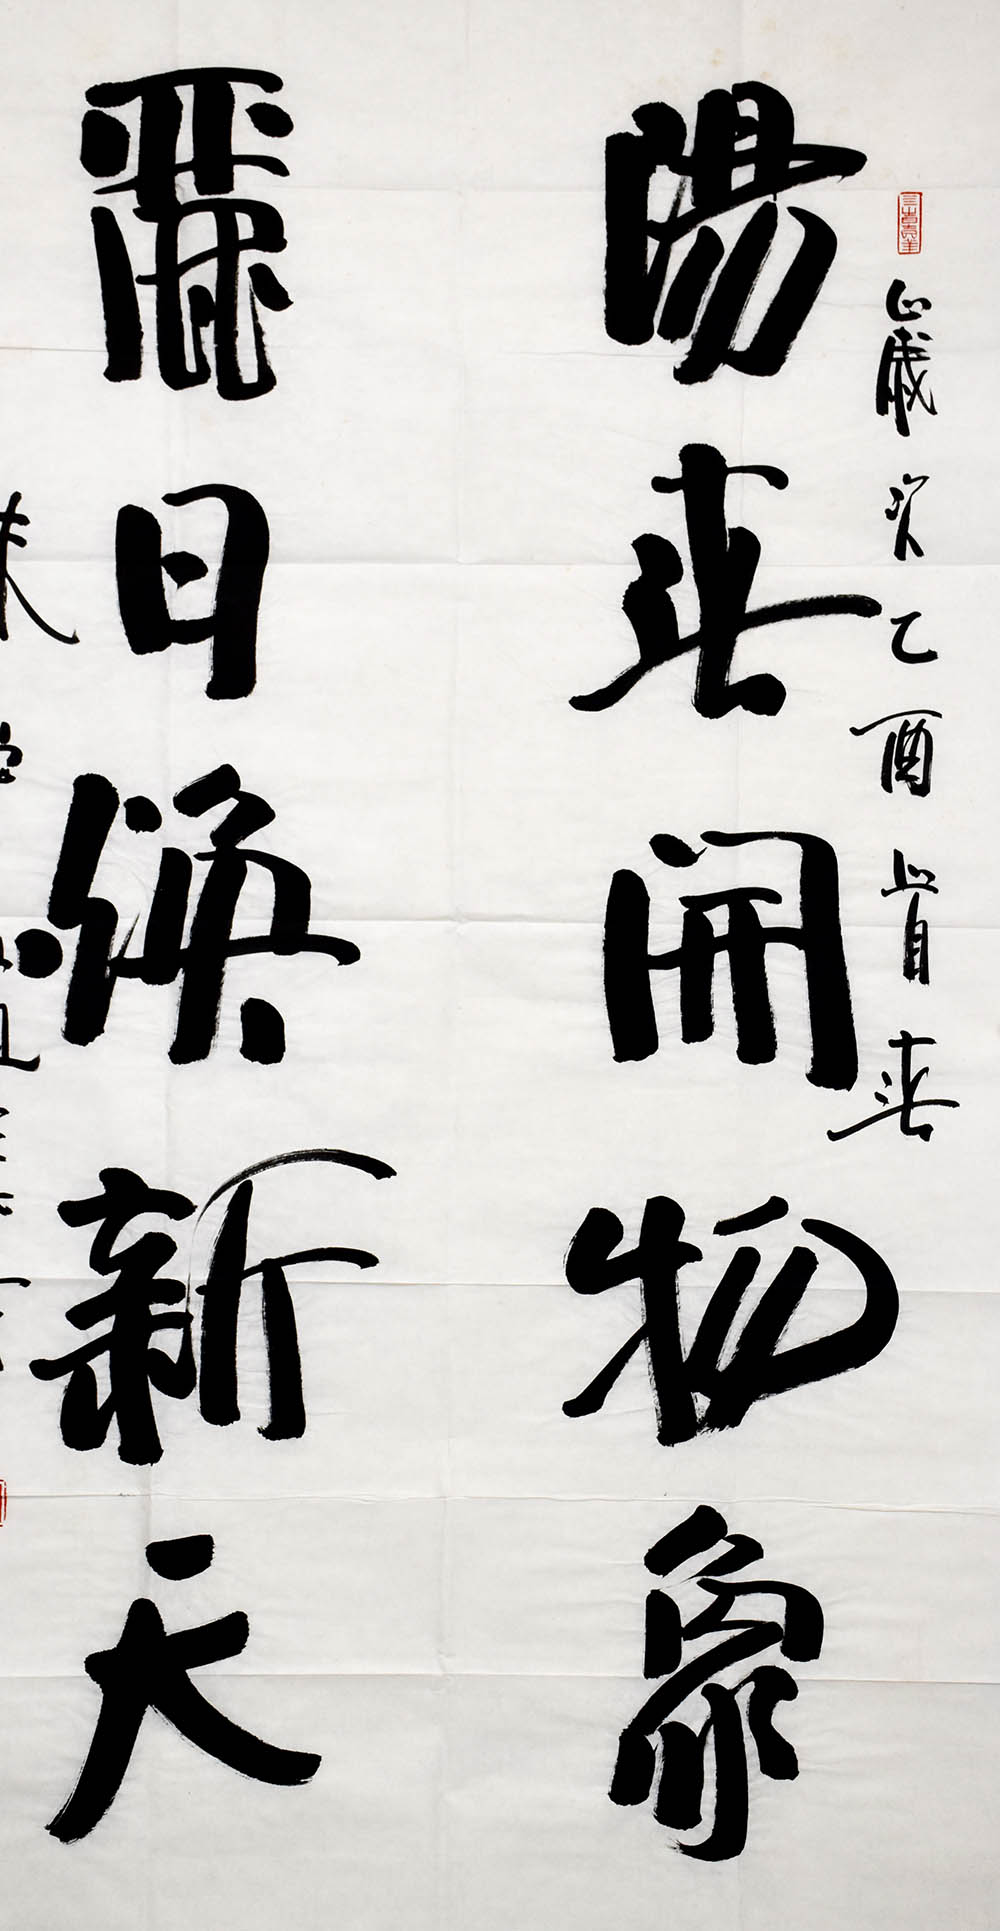 歲次乙酉首春
陽春開物象
麗日煥新天